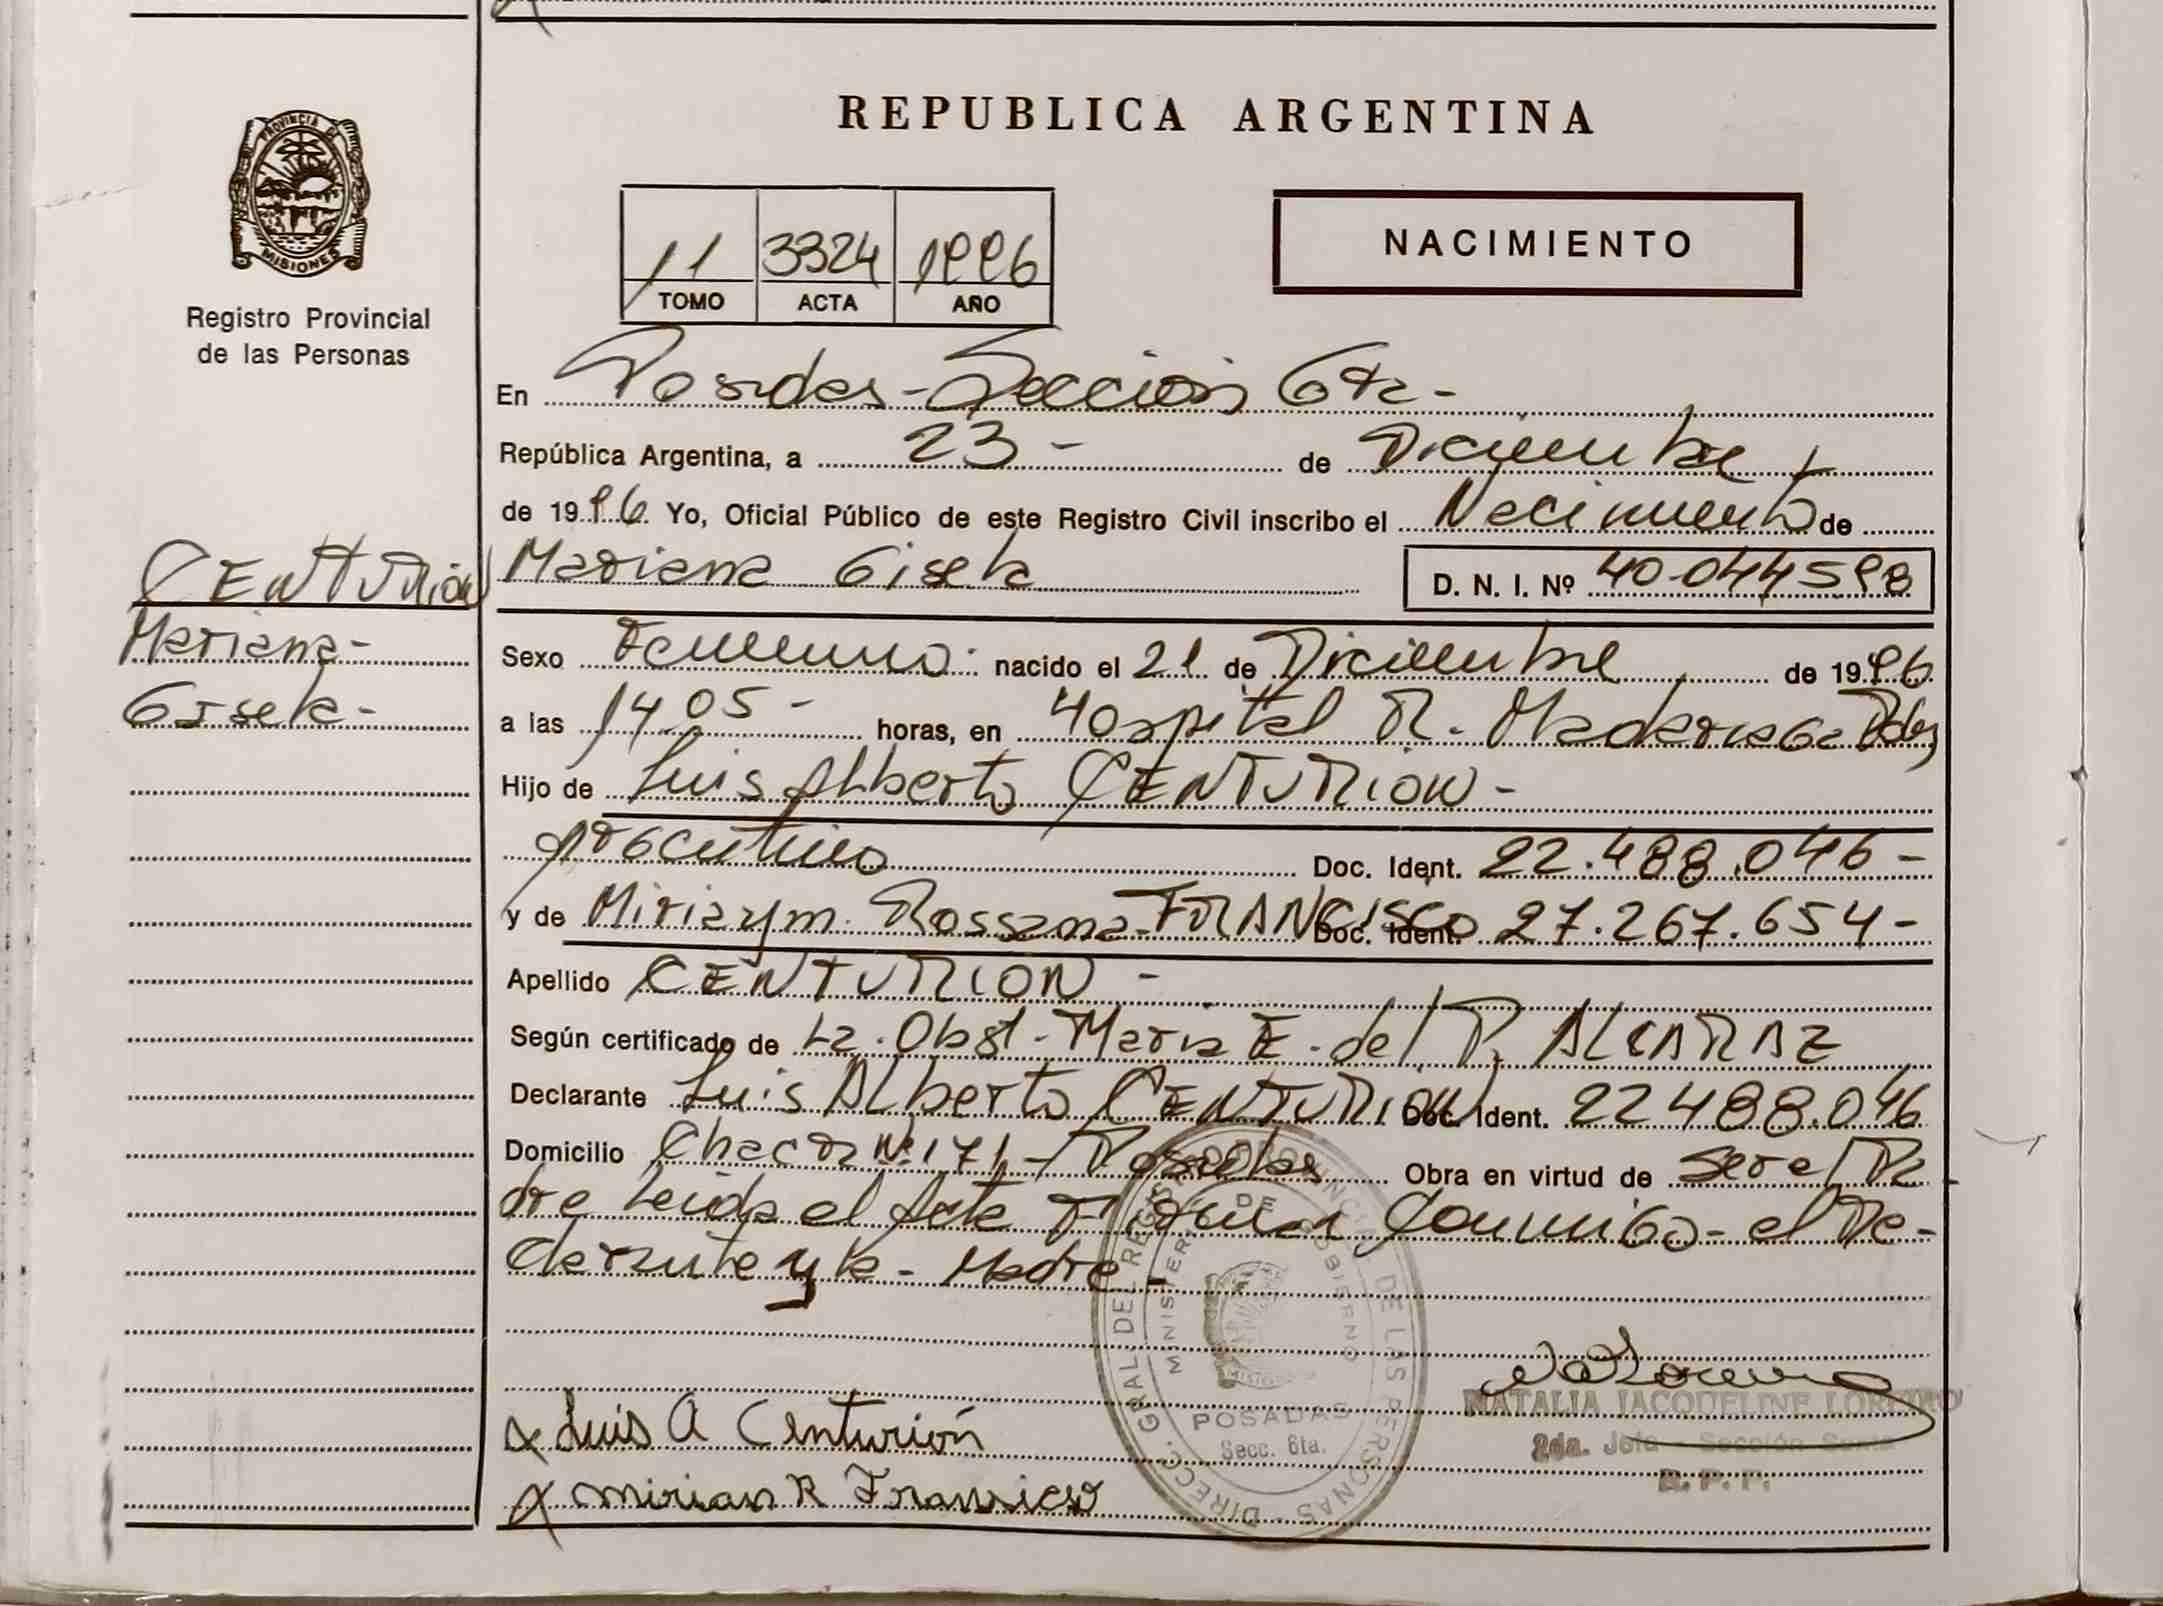 PROVINCIA DE
MISIONES
Registro Provincial
de las Personas
CENTURION
Mariana-
Gisela-
REPUBLICA ARGENTINA
11 3324 1996
TOMO ACTA AÑO
NACIMIENTO
En Posadas-Sección 6ta-
República Argentina, a 23- de Diciembre
de 1996 Yo, Oficial Público de este Registro Civil inscribo el Nacimiento de
Mariana Gisela D. N. I. Nº 40.044598
Sexo Femenino. nacido el 21 de Diciembre de 1996
a las 14,05- horas, en Hospital R. Madariaga Pdas
Hijo de Luis Alberto CENTURION-
argentino Doc. Ident. 22.488.046-
y de Miriaym. Rossana FRANCISCO Doc. Ident. 27.267.654-
Apellido CENTURION -
Según certificado de La. Obst. Maria E. del P. ALCARAZ
Declarante Luis Alberto CENTURION Doc. Ident. 22488.046
Domicilio Chacra Nº171-Posadas Obra en virtud de ser el Pa
dre Leida el Acta Firman Conmigo- el De-
clarante y la - Madre
DIRECC. GRAL. DEL REGISTRO PROVINCIAL DE LAS PERSONAS
MINISTERIO DE GOBIERNO
MISIONES
POSADAS
Secc. 6ta.
NATALIA JACQUELINE LOREIRO
2da. Jefa - Sección Sexta
R. P. P.
x Luis A Centurión
x Mirian R Fransisco